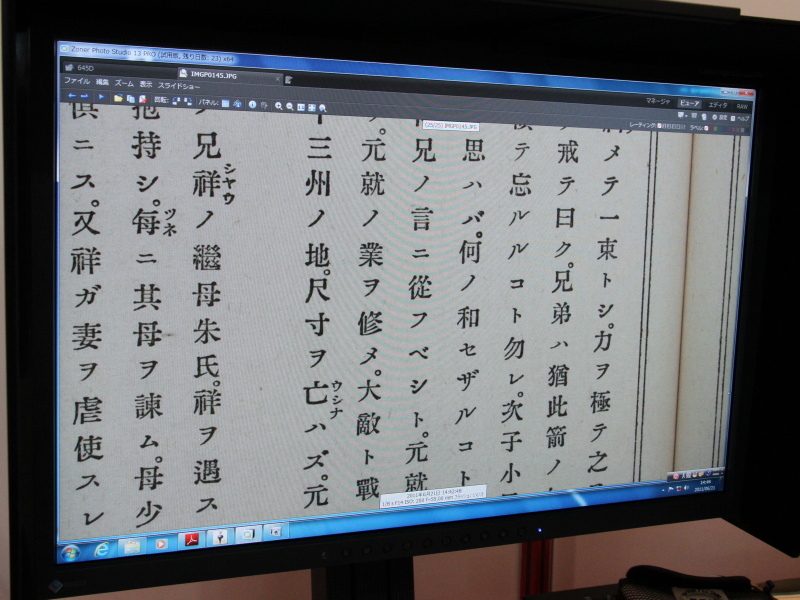 Zoner Photo Studio 13 PRO (試用版, 残り日数: 23) x64
645D
IMGP0145.JPG
ファイル 編集 ズーム 表示 スライドショー
マネージャ ビューア エディタ RAW
回転:
パネル:
設定 ヘルプ
(25/25) IMGP0145.JPG
レーティング:
ラベル:
メテ一束トシ。力ヲ極テ之
戒テ曰ク。兄弟ハ猶此箭ノ
テ忘ルルコト勿レ。次子小
思ハバ。何ノ和セザルコト
兄ノ言ニ從フベシト。元就
。元就ノ業ヲ修メ。大敵ト戰
三州ノ地。尺寸ヲ亡ハズ。元
ウシナ
兄祥ノ繼母朱氏。祥ヲ遇ス
シヤウ
抱持シ。每ニ其母ヲ諫ム。母少
ツネ
俱ニス。又祥ガ妻ヲ虐使スレ
2011年6月21日 14:43:48
14:44
2011/06/21